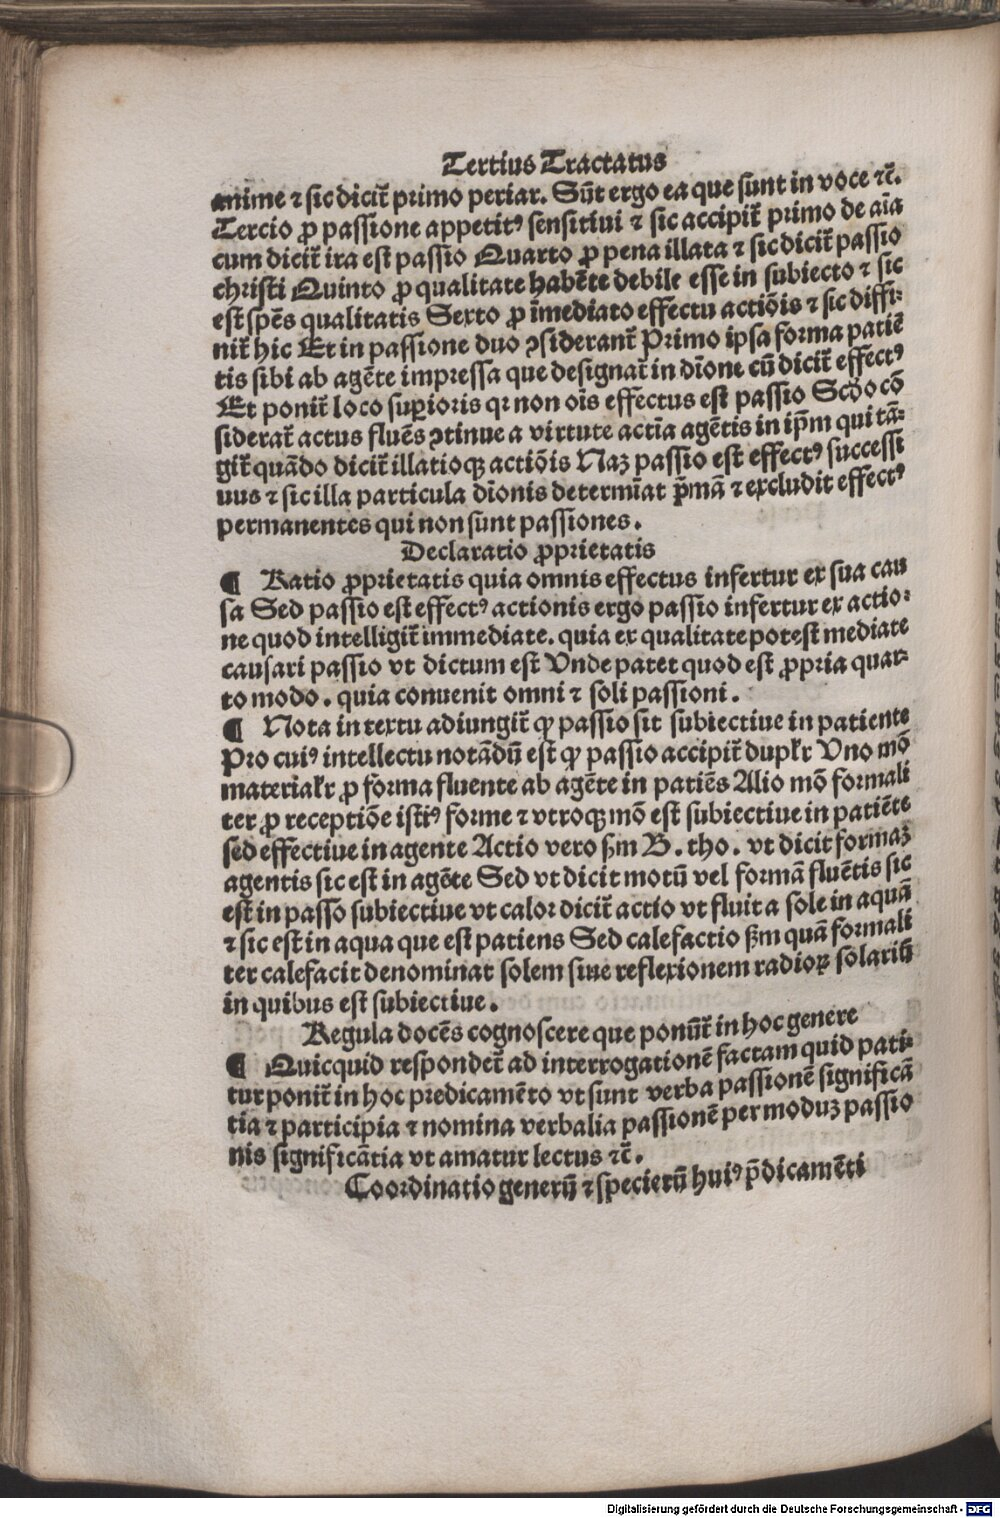 Tertius Tractatus
anime ⁊ sic dicit᷑ primo periar. Sūt ergo ea que sunt in voce ⁊c̄.
Tercio ꝓ passione appetitꝰ sensitiui ⁊ sic accipit᷑ primo de aīa
cum dicit᷑ ira est passio Quarto ꝓ pena illata ⁊ sic dicit᷑ passio
christi Quinto ꝓ qualitate habēte debile esse in subiecto ⁊ sic
est spēs qualitatis Sexto ꝓ īmediato effectu actiōis ⁊ sic diffi⸗
nit᷑ hic Et in passione duo ꝯsiderant᷑ Primo ipsa forma patiē
tis sibi ab agēte impressa que designat᷑ in dīone cū dicit᷑ effectꝰ
Et ponit᷑ loco suꝑioris qꝛ non oīs effectus est passio Scḋo cō
siderat᷑ actus fluēs ꝯtinue a virtute actīa agētis in ip̄m qui tā⸗
git᷑ quādo dicit᷑ illatioqꝫ actiōis Naꝫ passio est effectꝰ successi
uus ⁊ sic illa particula dīonis determīat p̄mā ⁊ excludit effectꝰ
permanentes qui non sunt passiones.
Declaratio ꝓprietatis
¶ Ratio ꝓprietatis quia omnis effectus infertur ex sua cau
sa Sed passio est effectꝰ actionis ergo passio infertur ex actio⸗
ne quod intelligit᷑ immediate. quia ex qualitate potest mediate
causari passio vt dictum est Unde patet quod est ꝓpria quar⸗
to modo. quia conuenit omni ⁊ soli passioni.
¶ Nota in textu adiungit᷑ ꝙ passio sit subiectiue in patiente
Pro cuiꝰ intellectu notādū est ꝙ passio accipit᷑ duplꝛ Uno mō
materialꝛ ꝓ forma fluente ab agēte in patiēs Alio mō formali
ter ꝓ receptiōe istiꝰ forme ⁊ vtroqꝫ mō est subiectiue in patiēte
sed effectiue in agente Actio vero ẜm B. tho. vt dicit formaꝫ
agentis sic est in agēte Sed vt dicit motū vel formā fluētis sic
est in passo subiectiue vt calor dicit᷑ actio vt fluit a sole in aquā
⁊ sic est in aqua que est patiens Sed calefactio ẜm quā formali
ter calefacit denominat solem siue reflexionem radioꝝ solariū
in quibus est subiectiue.
Regula docēs cognoscere que ponūt᷑ in hoc genere
¶ Quicquid respondet᷑ ad interrogationē factam quid pati⸗
tur ponit᷑ in hoc predicamēto vt sunt verba passionē significā
tia ⁊ participia ⁊ nomina verbalia passionē per moduꝫ passio
nis significātia vt amatur lectus ⁊c̄.
Coordinatio generū ⁊ specierū huiꝰ p̄dicamēti
Digitalisierung gefördert durch die Deutsche Forschungsgemeinschaft - DFG